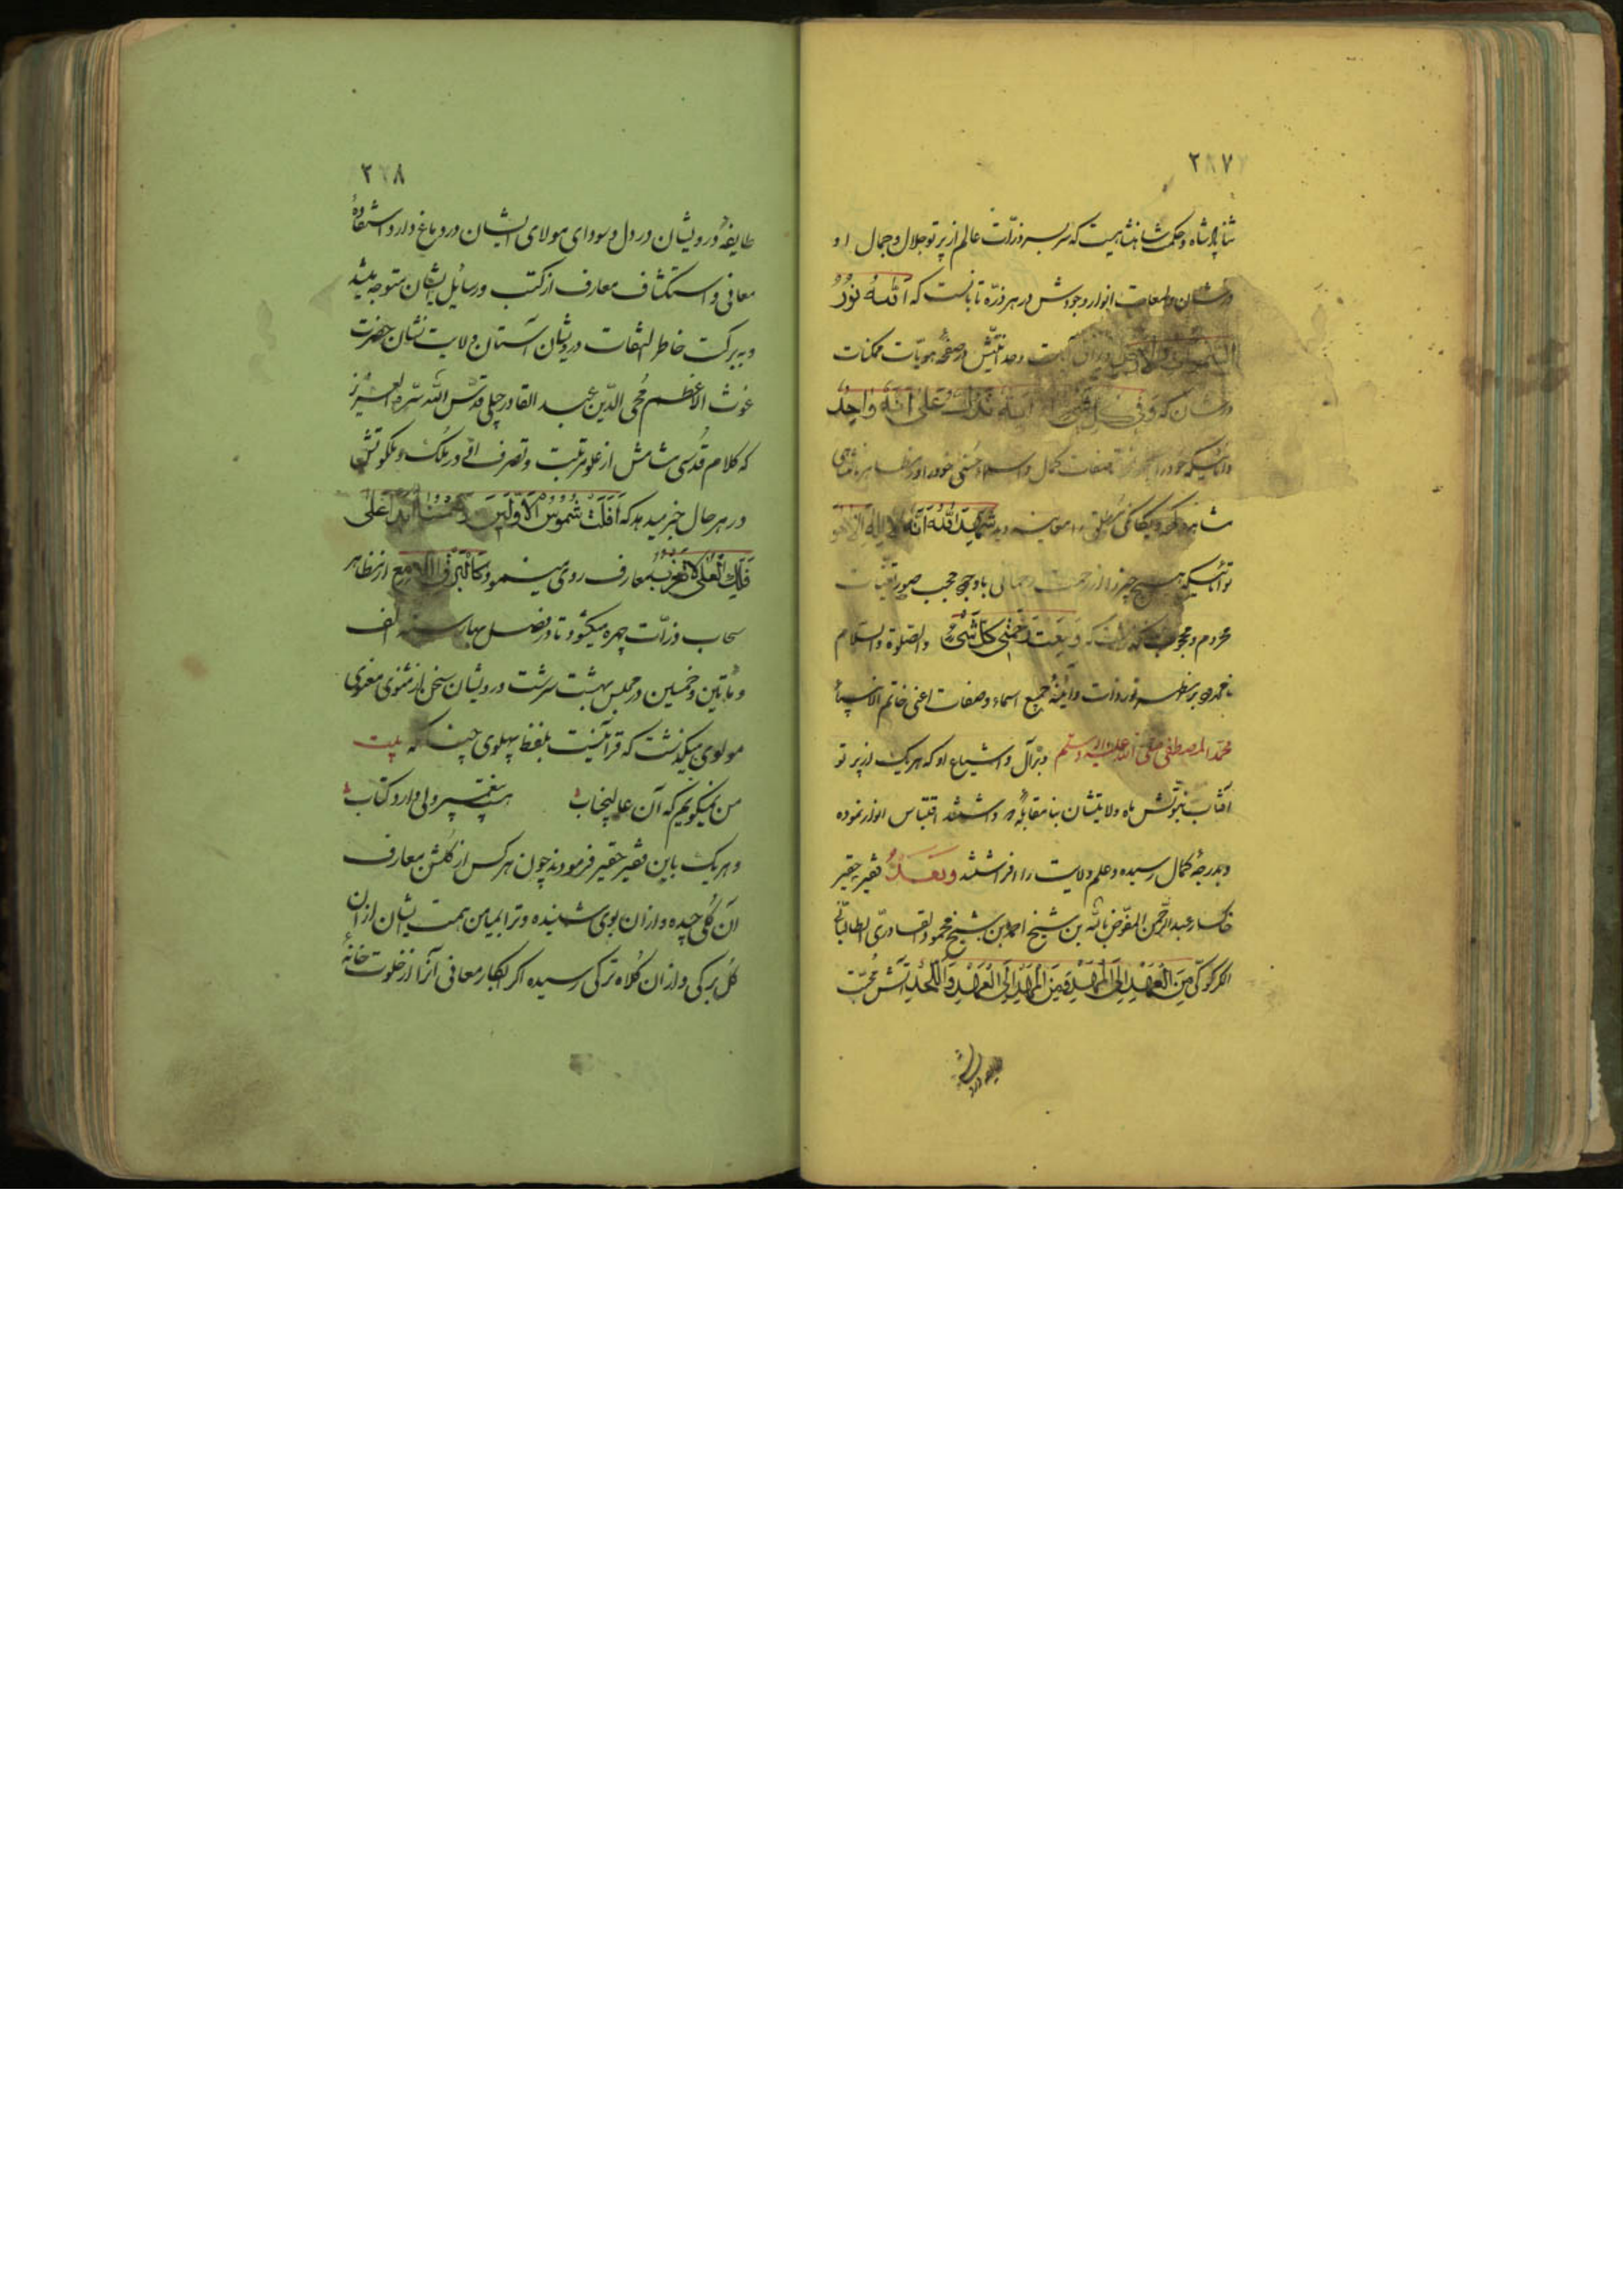 ۲۸۷
شاه و حکمت شاهنشاهیست که سربسر ذرّات عالم از پرتو جلال و جمال او
درخشان و لمعات انوار وجودش در هر ذرّه تابانست که اَللهُ نُورُ
السَّمٰوات وَالاَرض آیت وحدانیّتش از صفحه هویّات ممکنات
درخشان که وَفی کُلِّ شَیءٍ لَهُ آیَةٌ تَدُلُّ عَلی اَنَّهُ واحِدٌ
خود را صفات کمال و اسماء حسنی خود را در مظاهر
مشاهده و یکانکی مطلق معاینه دید شَهِدَ اللهُ اَنَّهُ لا اِلهَ اِلّا هو
هیچ چیز را از رحمت رحمانی با وجود حجب صور تعیّنات
محروم و محجوب که وَسِعَت رَحمَتی کُلَّ شَیءٍ والصّلوة والسّلام
نور ذات و آئینۀ جمیع اسماء و صفات اعنی خاتم الانبیاء
محمّد المصطفی صلی الله علیه وسلم و بر آل و اشیاع او که هریک از پرتو
آفتاب نبوّتش ماه ولایتشان بنا مقابلۀ داشتند اقتباس انوار نموده
و بدرجۀ کمال رسیده و علم ولایت را افراشتند وَبَعدُ فقیر حقیر
خاکسار عبدالرّحمن المفوّض بالله بن شیخ احمد بن شیخ محمود القادریّ الطالبانیّ
الکرکوکیّ مِنَ العَهدِ اِلَی المَهدِ وَمِنَ المَهدِ اِلَی العَهدِ وَاللَّحدِ آتش محبّت
۲۸۸
طایفۀ درویشان در دل و سودای مولای ایشان در دماغ دارد و استفادۀ
معانی و استکشاف معارف از کتب و رسایل ایشان متوجه میشد
و ببرکت خاطر التفات درویشان آستان ولایت نشان حضرت
غوث الاعظم مُحی الدّین عبد القادر جیلی قدّس الله سرّه العزیز
که کلام قدسی مشامش از علو مرتبت و تصرف اتی در ملک و ملکوتش
در هر حال خبر میدهد که اَفَلَت شُموسُ الاَوّلینَ وَشَمسُنا اَبَداً عَلی
فَلَکِ العُلی لا تَغرُبُ معارف روی مینمود کَالبَرقِ اللّامِع از مظاهر
سحاب ذرّات چهره میکشود تا در فصل بهار سنه الف
و مأتین و خمسین در مجلس بهشت سرشت درویشان سخن از مثنوی معنوی
مولوی میکذشت که قرآنیست بلفظ پهلوی چنانکه بیت
من نمیکویم که آن عالیجناب هست پیغمبر ولی دارد کتاب
و هریک باین فقیر حقیر فرمودند چون هر کس از کلشن معارف
آن کلی چیده و از ان بوی شنیده و ترا بمیامن همت ایشان از ان
کل برکی و از ان کلاه ترکی رسیده اکر ابکار معانی آنرا از خلوت خانۀ